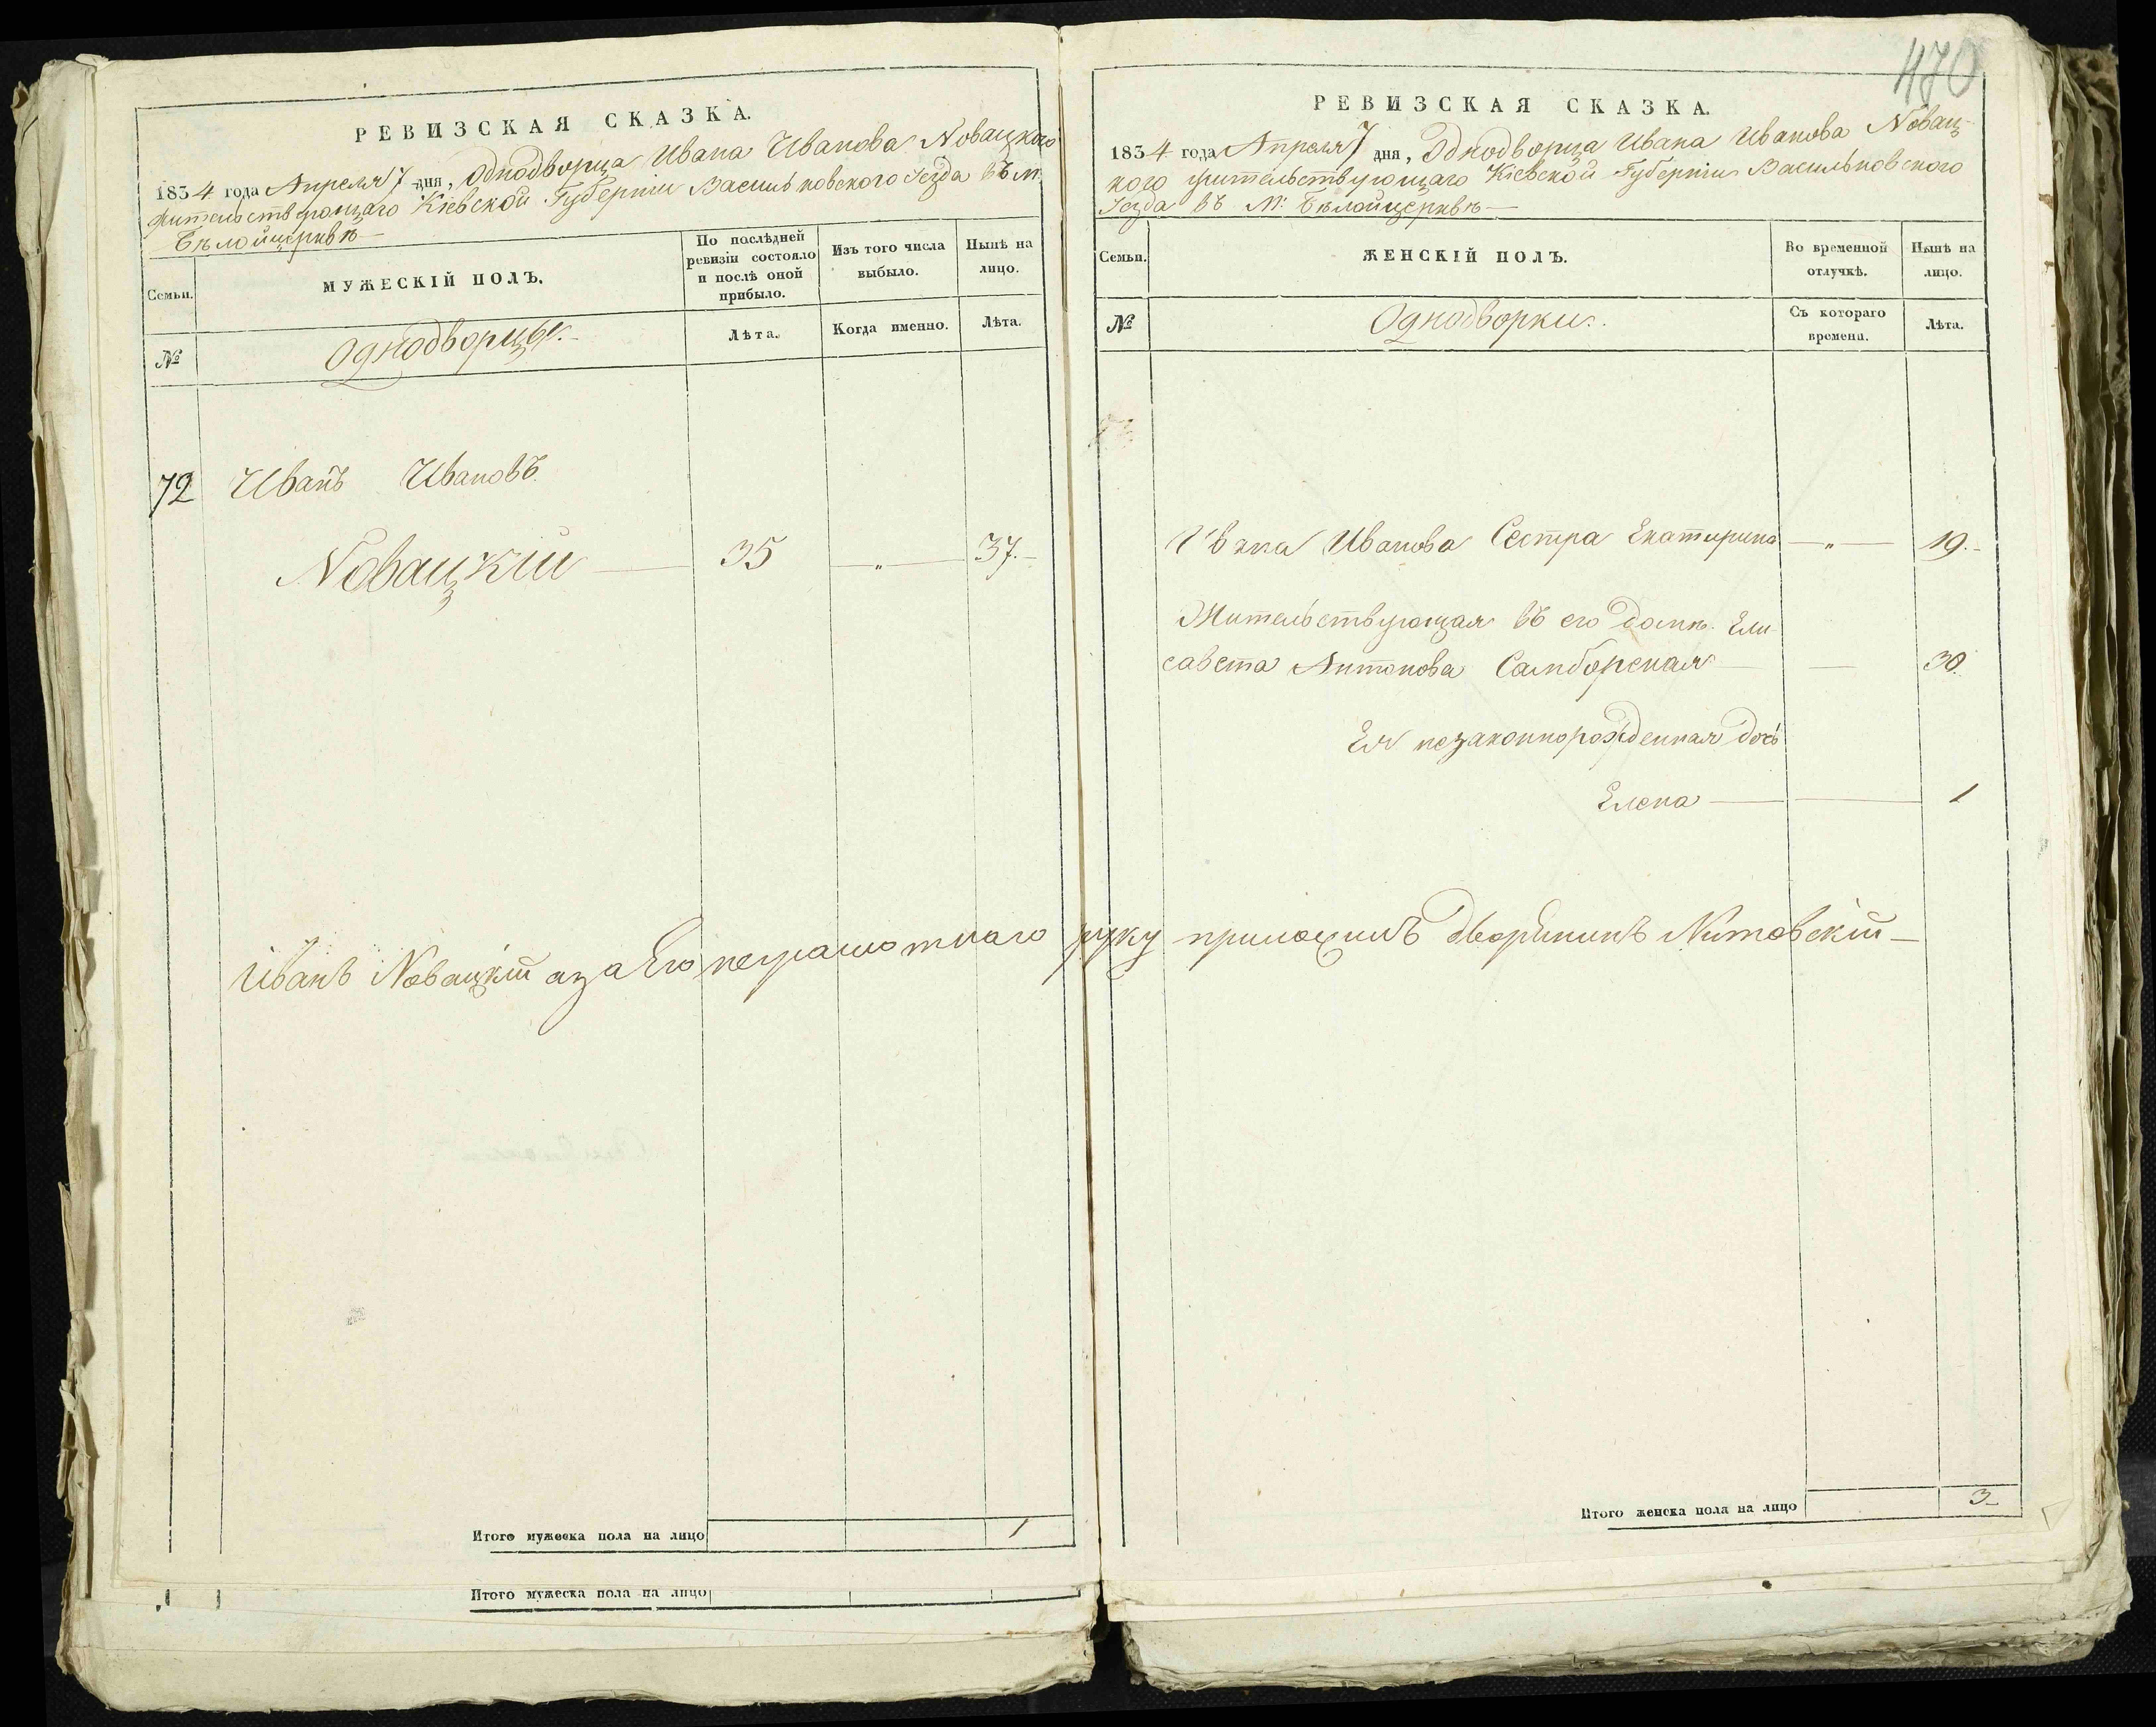 470
РЕВИЗСКАЯ СКАЗКА.
1834 года Апреля 7 дня, Однодворца Ивана Иванова Новацкого
жительствующаго Кіевской Губерніи Васильковского Уезда въ м.
Бѣлойцерквѣ
Семьи.
МУЖЕСКІЙ ПОЛЪ.
По послѣдней
ревизіи состояло
и послѣ оной
прибыло.
Изъ того числа
выбыло.
Нынѣ на
лицо.
№
Однодворцы.
Лѣта.
Когда именно.
Лѣта.
72 Иванъ Ивановъ
Новацкій — 35 — „ — 37.
Иванъ Новацкій а за Его неграмотнаго руку приложилъ Дворянинъ
Итого мужеска пола на лицо 1
Итого мужеска пола на лицо
РЕВИЗСКАЯ СКАЗКА.
1834 года Апреля 7 дня, Однодворца Ивана Иванова Новац-
кого жительствующаго Кіевской Губерніи Васильковского
Уезда въ М: Бѣлойцерквѣ —
Семьи.
ЖЕНСКІЙ ПОЛЪ.
Во временной
отлучкѣ.
Нынѣ на
лицо.
№
Однодворки.
Съ котораго
времени.
Лѣта.
Ивана Иванова Сестра Екатирина — „ — 19.
Жительствующая въ его домѣ Ели
савета Антонова Самборская — 30.
Ея незаконнорожденная дочь
Елена — 1
Итого женска пола на лицо 3